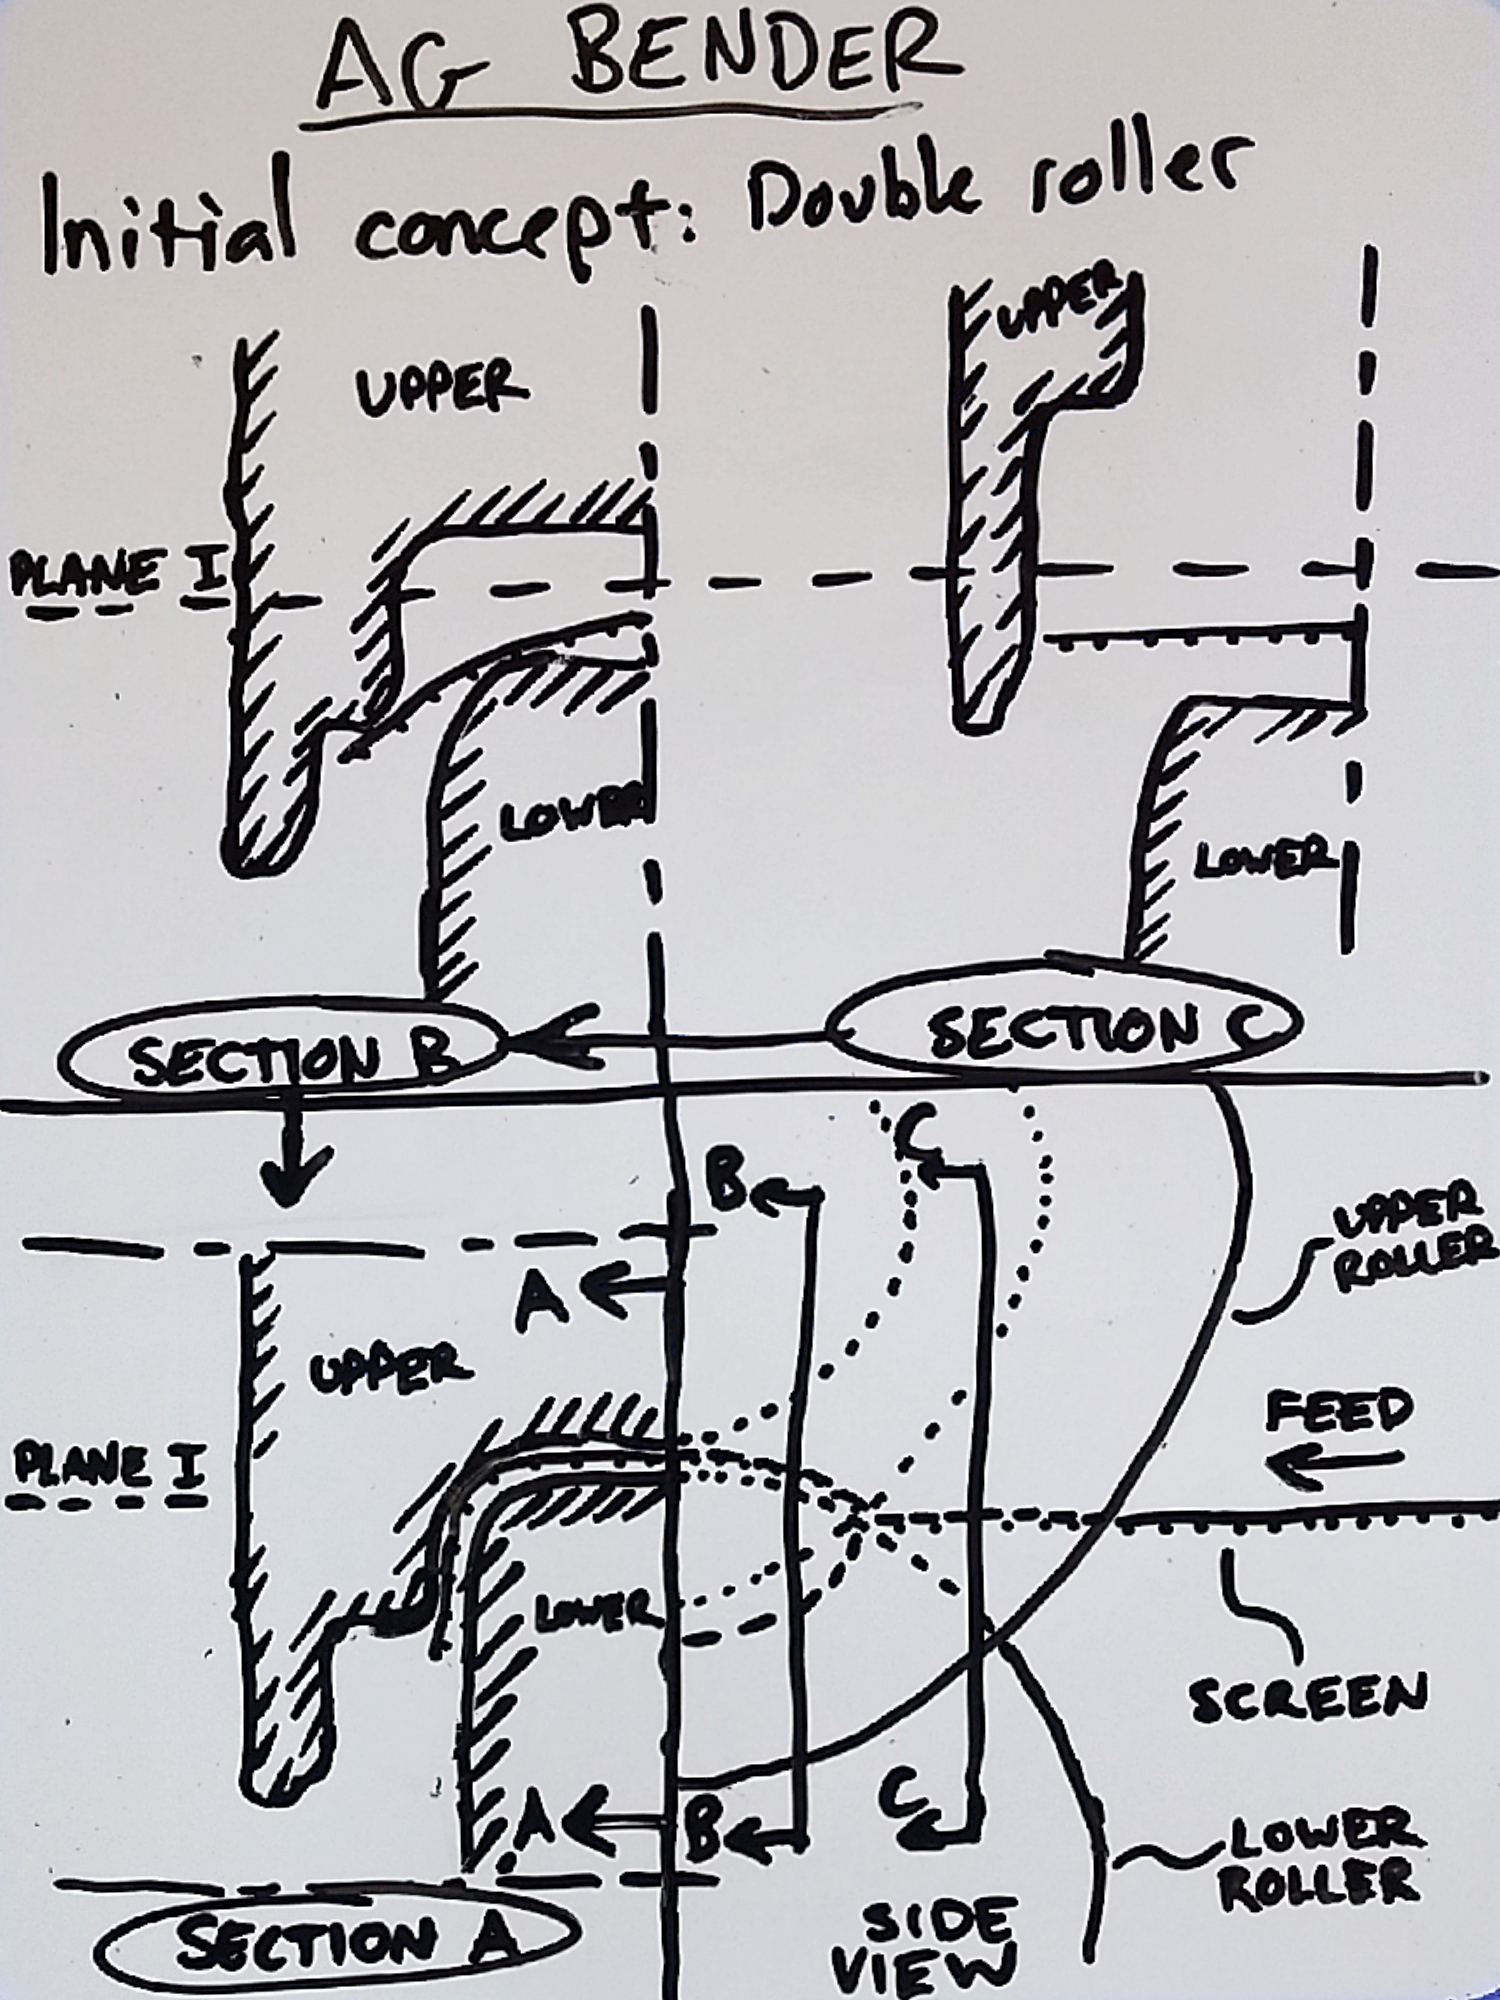 AG BENDER
Initial concept: Double roller
UPPER
UPPER
PLANE I
LOWER
LOWER
SECTION B
SECTION C
C
B
A
UPPER ROLLER
UPPER
FEED
PLANE I
LOWER
SCREEN
A
B
C
LOWER ROLLER
SIDE VIEW
SECTION A